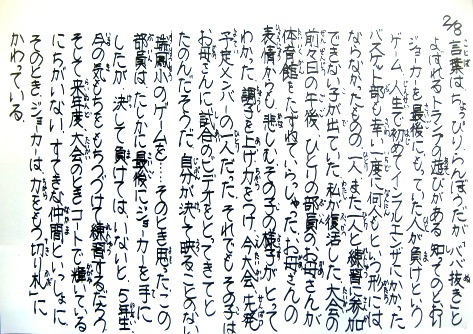 2/8 言葉はちょっぴりらんぼうだが「ババ抜き」と
よばれるトランプの遊びがある 知ってのとおり
ジョーカーを最後にもっていた人が負けという
ゲーム 人生で初めてインフルエンザにかかった
バスケット部も幸い一度に何人もという形には
ならなかったものの 一人また一人と練習に参加
できない子が出ていた 私が復活した大会の
前々日の午後 ひとりの部員のお母さんが
体育館をたずねていらしゃった お母さんの
表情からも悲しむその子の様子がとって
わかった 調子を上げ力をつけ 今大会 先発
予定メンバーの一人だった それでもその子は
お母さんに試合のビデオをとってきてと
たのんだそうだ 自分が決して映ることのない
瑞鳳小のゲームを… そのとき思った この
部員は たしかに最後にジョーカーを手に
したが 決して負けてはいないと 5年生
今の気もちをもちつづけて練習するだろう
そして来年度 大会のときコートで輝いている
にちがいない すてきな仲間といっしょに
そのときジョーカーは 力をもつ「切り札」に
かわっている